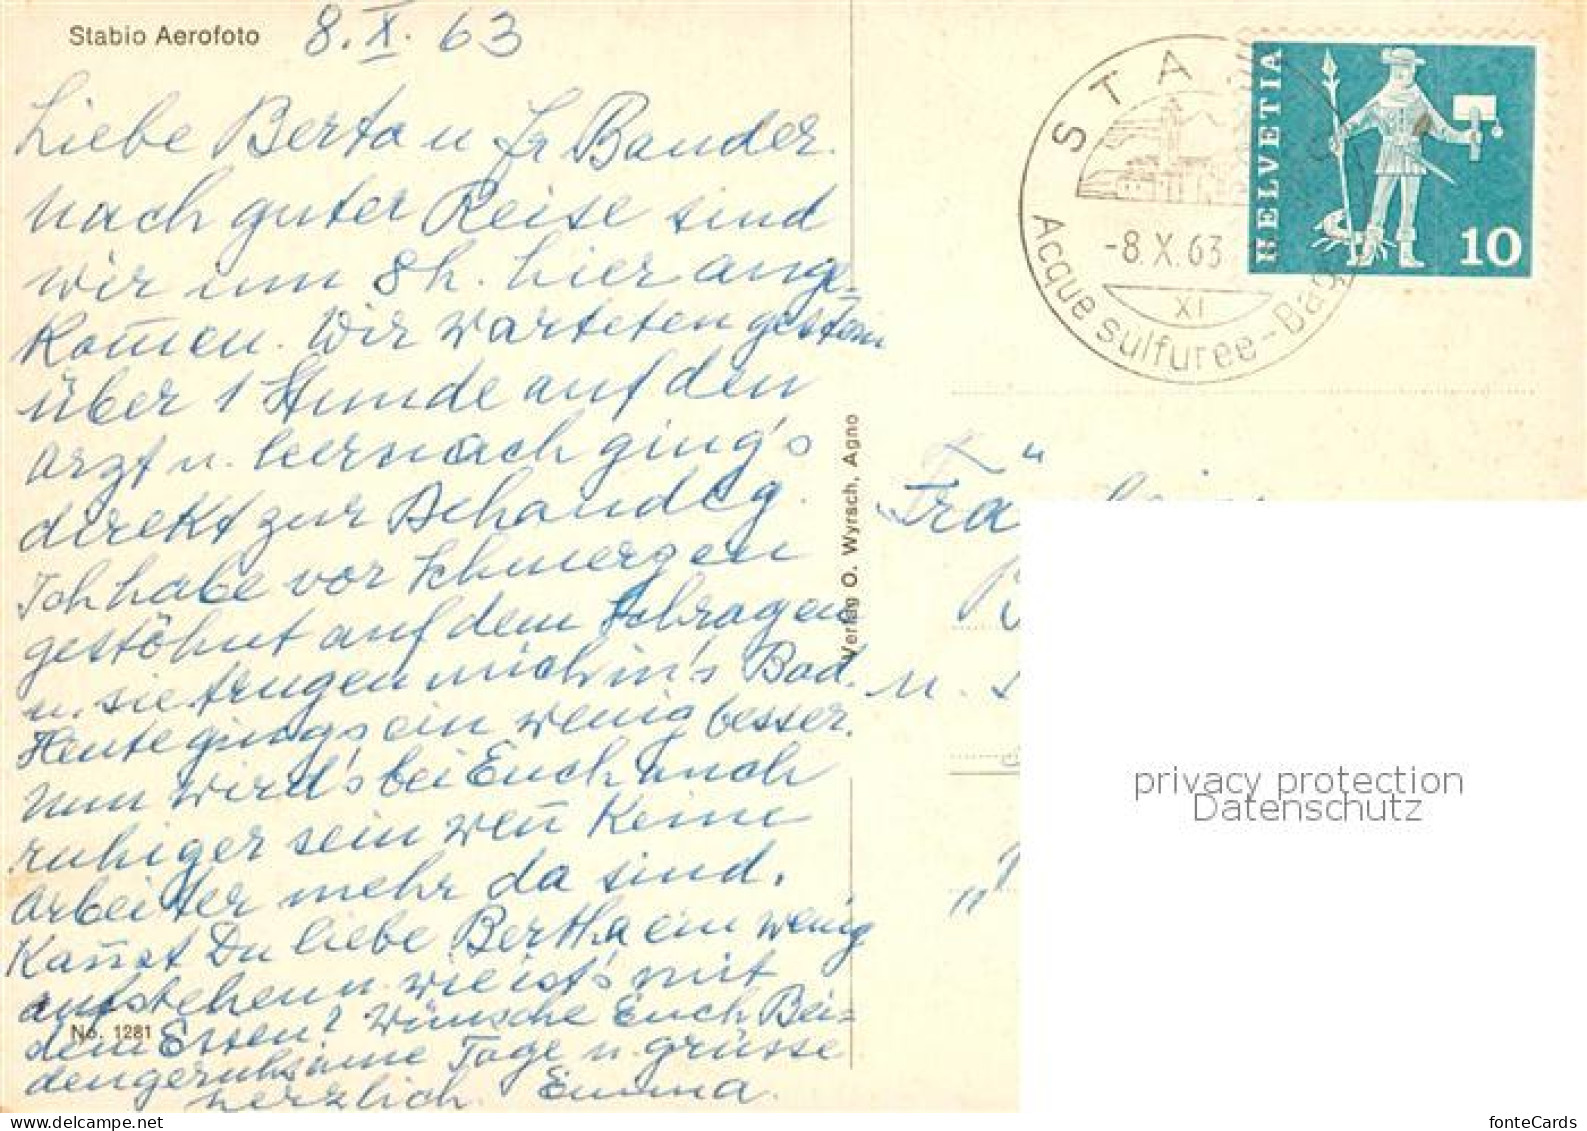 Stabio Aerofoto 8. X. 63
Liebe Berta u Fr Bander.
nach guter Reise sind
wir um 8h. hier ange-
kom̄en. Wir warteten gestern
über 1 Stunde auf den
Arzt u. hernach ging's
direkt zur Behandlg.
Ich habe vor Schmerzen
gestöhnt auf dem Schragen
u. sie trugen mich in's Bad.
Heute ging's ein wenig besser.
Nun wird's bei Euch auch
ruhiger sein wen̄ keine
Arbeiter mehr da sind.
Kan̄st Du liebe Bertha ein wenig
aufstehen u. wie ist's mit
dem Essen? Wünsche Euch Bei=
den geruhsame Tage u. grüsse
herzlich Emma.
No. 1281
Verlag O. Wyrsch, Agno
STA
-8.X.63
XI
Acque sulfuree - Bag
HELVETIA
10
privacy protection
Datenschutz
fonteCards